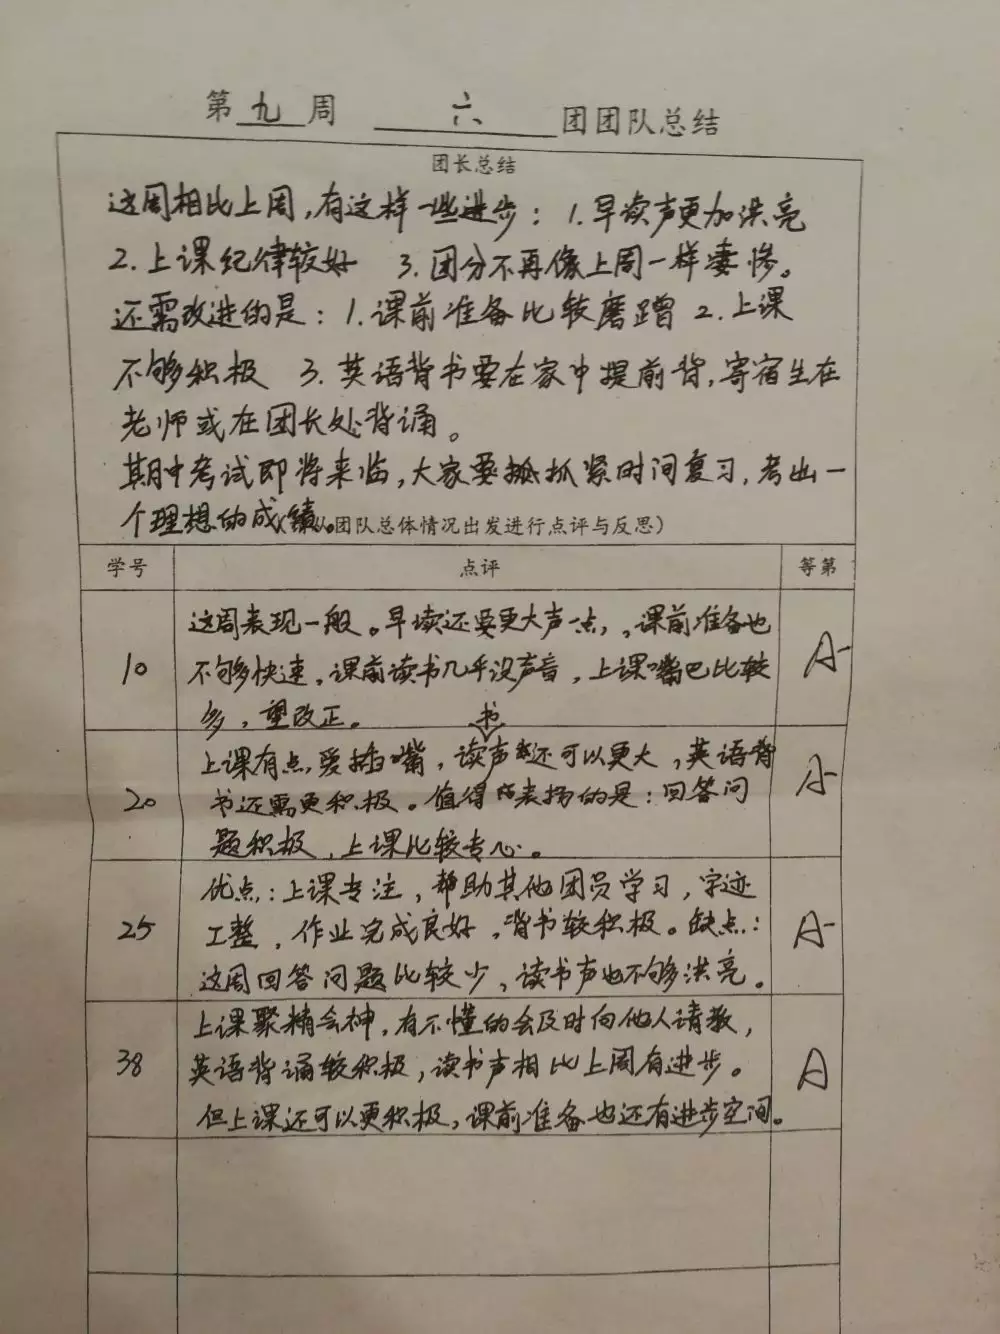 第九周 六 团团队总结
团长总结
这周相比上周,有这样一些进步: 1.早读声更加洪亮
2.上课纪律较好 3.团分不再像上周一样凄惨。
还需改进的是: 1.课前准备比较磨蹭 2.上课
不够积极 3.英语背书要在家中提前背,寄宿生在
老师或在团长处背诵。
期中考试即将来临,大家要抓抓紧时间复习,考出一
个理想的成绩。从团队总体情况出发进行点评与反思)
学号 点评 等第
这周表现一般。早读还要更大声一点,,课前准备也
10 不够快速。课前读书几乎没声音,上课嘴巴比较 A-
多,望改正。
上课有点爱插嘴,读书声还可以更大,英语背
20 书还需更积极。值得表扬的是:回答问 A-
题积极,上课比较专心。
优点:上课专注,帮助其他团员学习,字迹
25 工整,作业完成良好,背书较积极。缺点: A-
这周回答问题比较少,读书声也不够洪亮。
上课聚精会神,有不懂的会及时向他人请教,
38 英语背诵较积极,读书声相比上周有进步。 A
但上课还可以更积极,课前准备也还有进步空间。